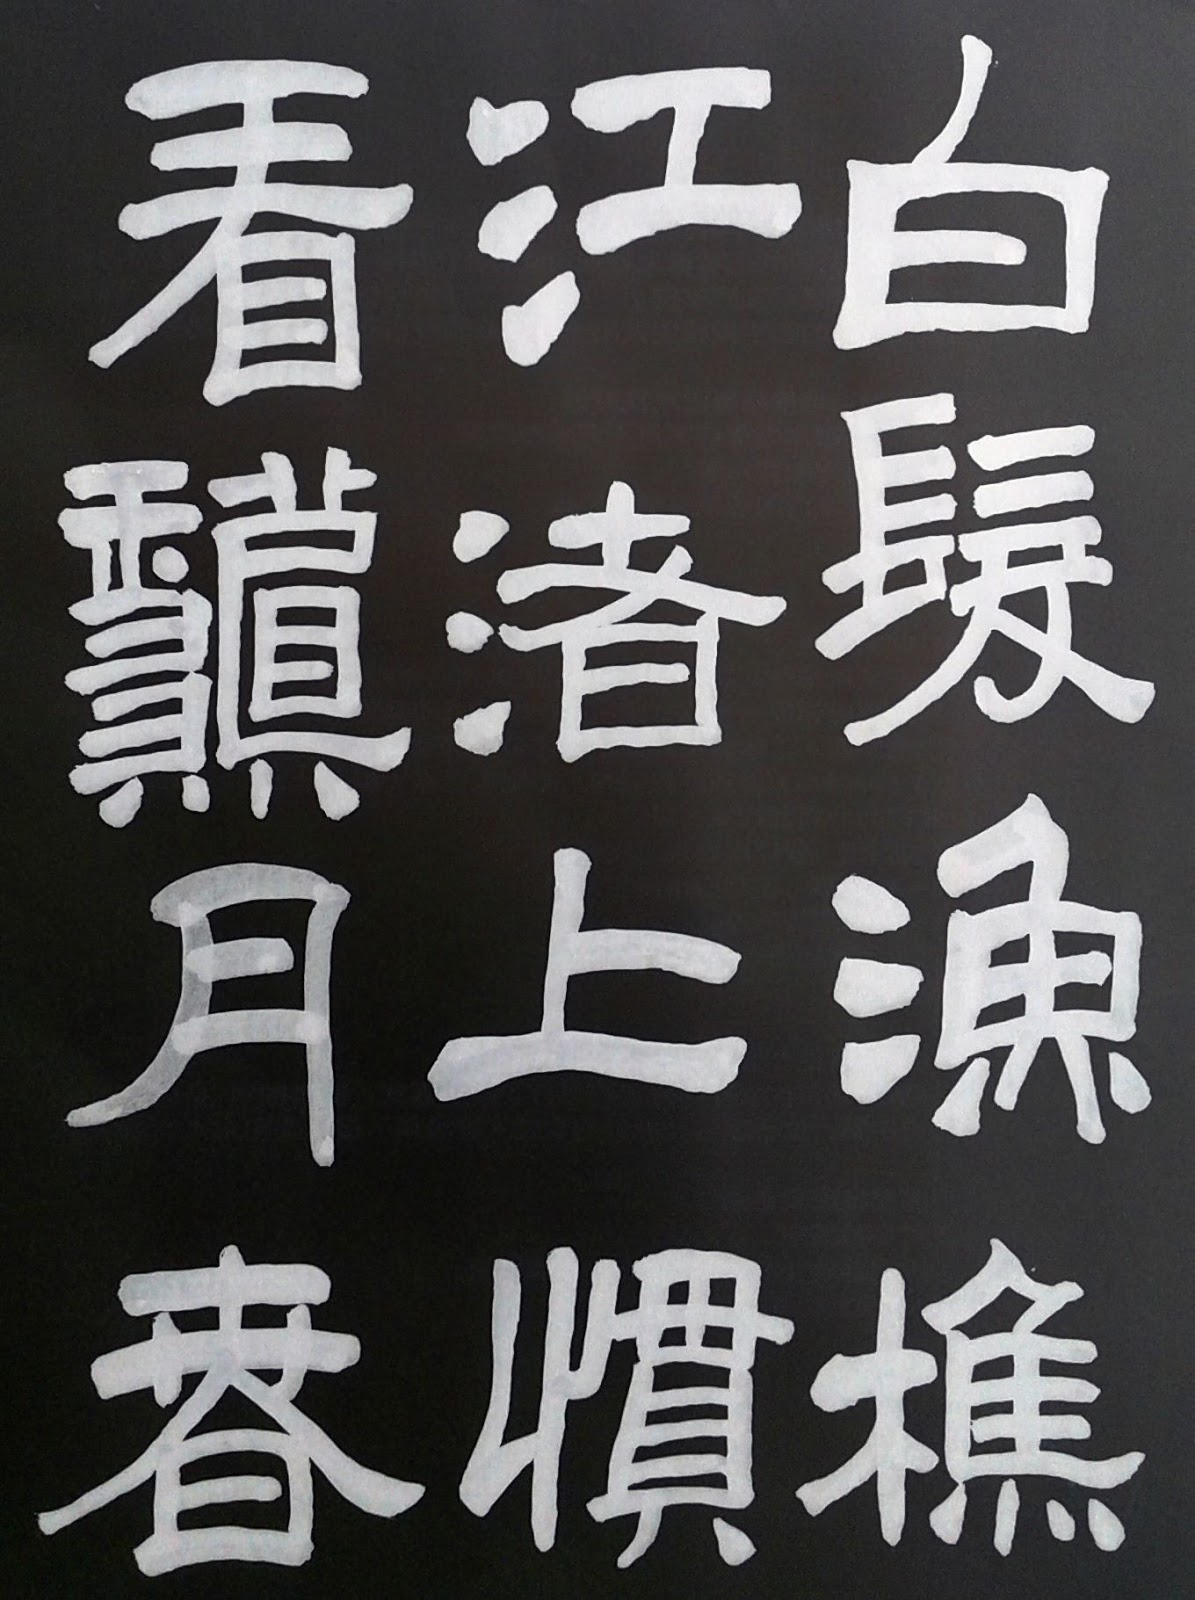 白髮漁樵
江渚上慣
看月春